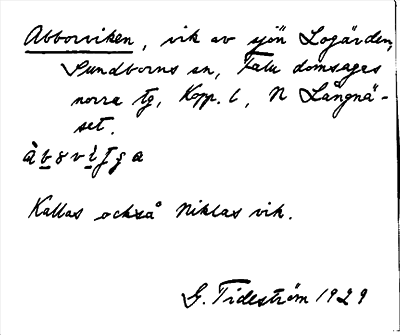 Abborrviken, vik av sjön Logärden,
Sundborns sn, Falu domsagas
norra tg, Kopp. l, N Långnä-
set.
Kallas också Niklas vik.
G. Tideström 1929